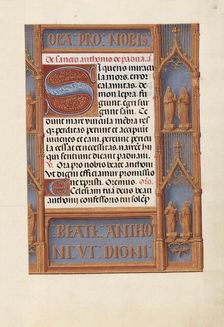 ORA PRO NOBIS
De sancto anthonio de padua.
Si queris miracula
la mors. error. ca
lamitas. de
mon lepra fu
giunt. egri sur
gunt sani. Ce
dunt mare vincula mēbra res
qȝ perditas petunt et accipiunt
iuuenes et cani. Pereunt pericu
la cessat et necessitas. narrent
hii qui sentiunt dicant paduani.
V Ora pro nobis beate anthoni
Vt digni efficiamur promissio
ne xp̄isti. Oremus
Ecclesiam tuā deus beati
anthonij confessoris tui solēp
BEATE ANTHO
NI VT DIGNI